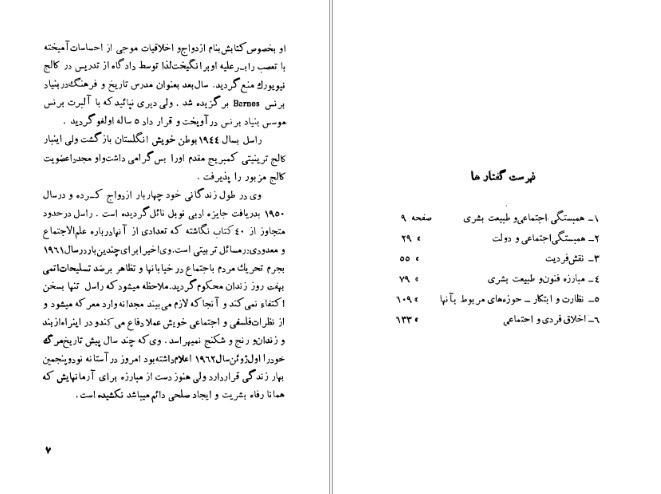 فهرست گفتار ها
۱ــ همبستگی اجتماعی و طبیعت بشری صفحه ۹
۲ــ همبستگی اجتماعی و دولت » ۲۹
۳ــ نقش فردیت » ۵۵
۴ــ مبارزه فنون و طبیعت بشری » ۷۹
۵ــ نظارت و ابتکار ــ حوزه‌های مربوط بآنها » ۱۰۹
۶ــ اخلاق فردی و اجتماعی » ۱۳۳
او بخصوص کتابش بنام ازدواج و اخلاقیات موجی از احساسات آمیخته
با تعصب را بر علیه او برانگیخت لذا توسط دادگاه از تدریس در کالج
نیویورک منع گردید. سال بعد بعنوان مدرس تاریخ و فرهنگ در بنیاد
برنس Barnes برگزیده شد . ولی دیری نپائید که با آلبرت برنس
موسس بنیاد برنس در آویخت و قرار داد ۵ ساله او لغو گردید .
راسل بسال ۱۹۴۴ بوطن خویش انگلستان بازگشت ولی اینبار
کالج ترینیتی کمبریج مقدم او را بس گرامی داشت و او مجددا عضویت
کالج مزبور را پذیرفت .
وی در طول زندگانی خود چهار بار ازدواج کرده و در سال
۱۹۵۰ بدریافت جایزه ادبی نوبل نائل گردیده است . راسل در حدود
متجاوز از ۴۰ کتاب نگاشته که تعدادی از آنها درباره علم الاجتماع
و معدودی در مسائل تربیتی است. وی اخیر ا برای چندین بار در سال ۱۹۶۱
بجرم تحریک مردم باجتماع در خیابانها و تظاهر بر ضد تسلیحات اتمی
بهفت روز زندان محکوم گردید. ملاحظه میشود که راسل تنها بسخن
اکتفاء نمی کند و آنجا که لازم می بیند مجدانه وارد معرکه میشود و
از نظرات فلسفی و اجتماعی خویش عملا دفاع می کند و در اینراه از بند
و زندان و رنج و شکنج نمیهراسد . وی که چند سال پیش تاریخ مرگ
خود را اول ژوئن سال ۱۹۶۲ اعلام داشته بود امروز در آستانه نود و پنجمین
بهار زندگی قرار دارد ولی هنوز دست از مبارزه برای آرمانهایش که
همانا رفاه بشریت و ایجاد صلحی دائم میباشد نکشیده است .
۷